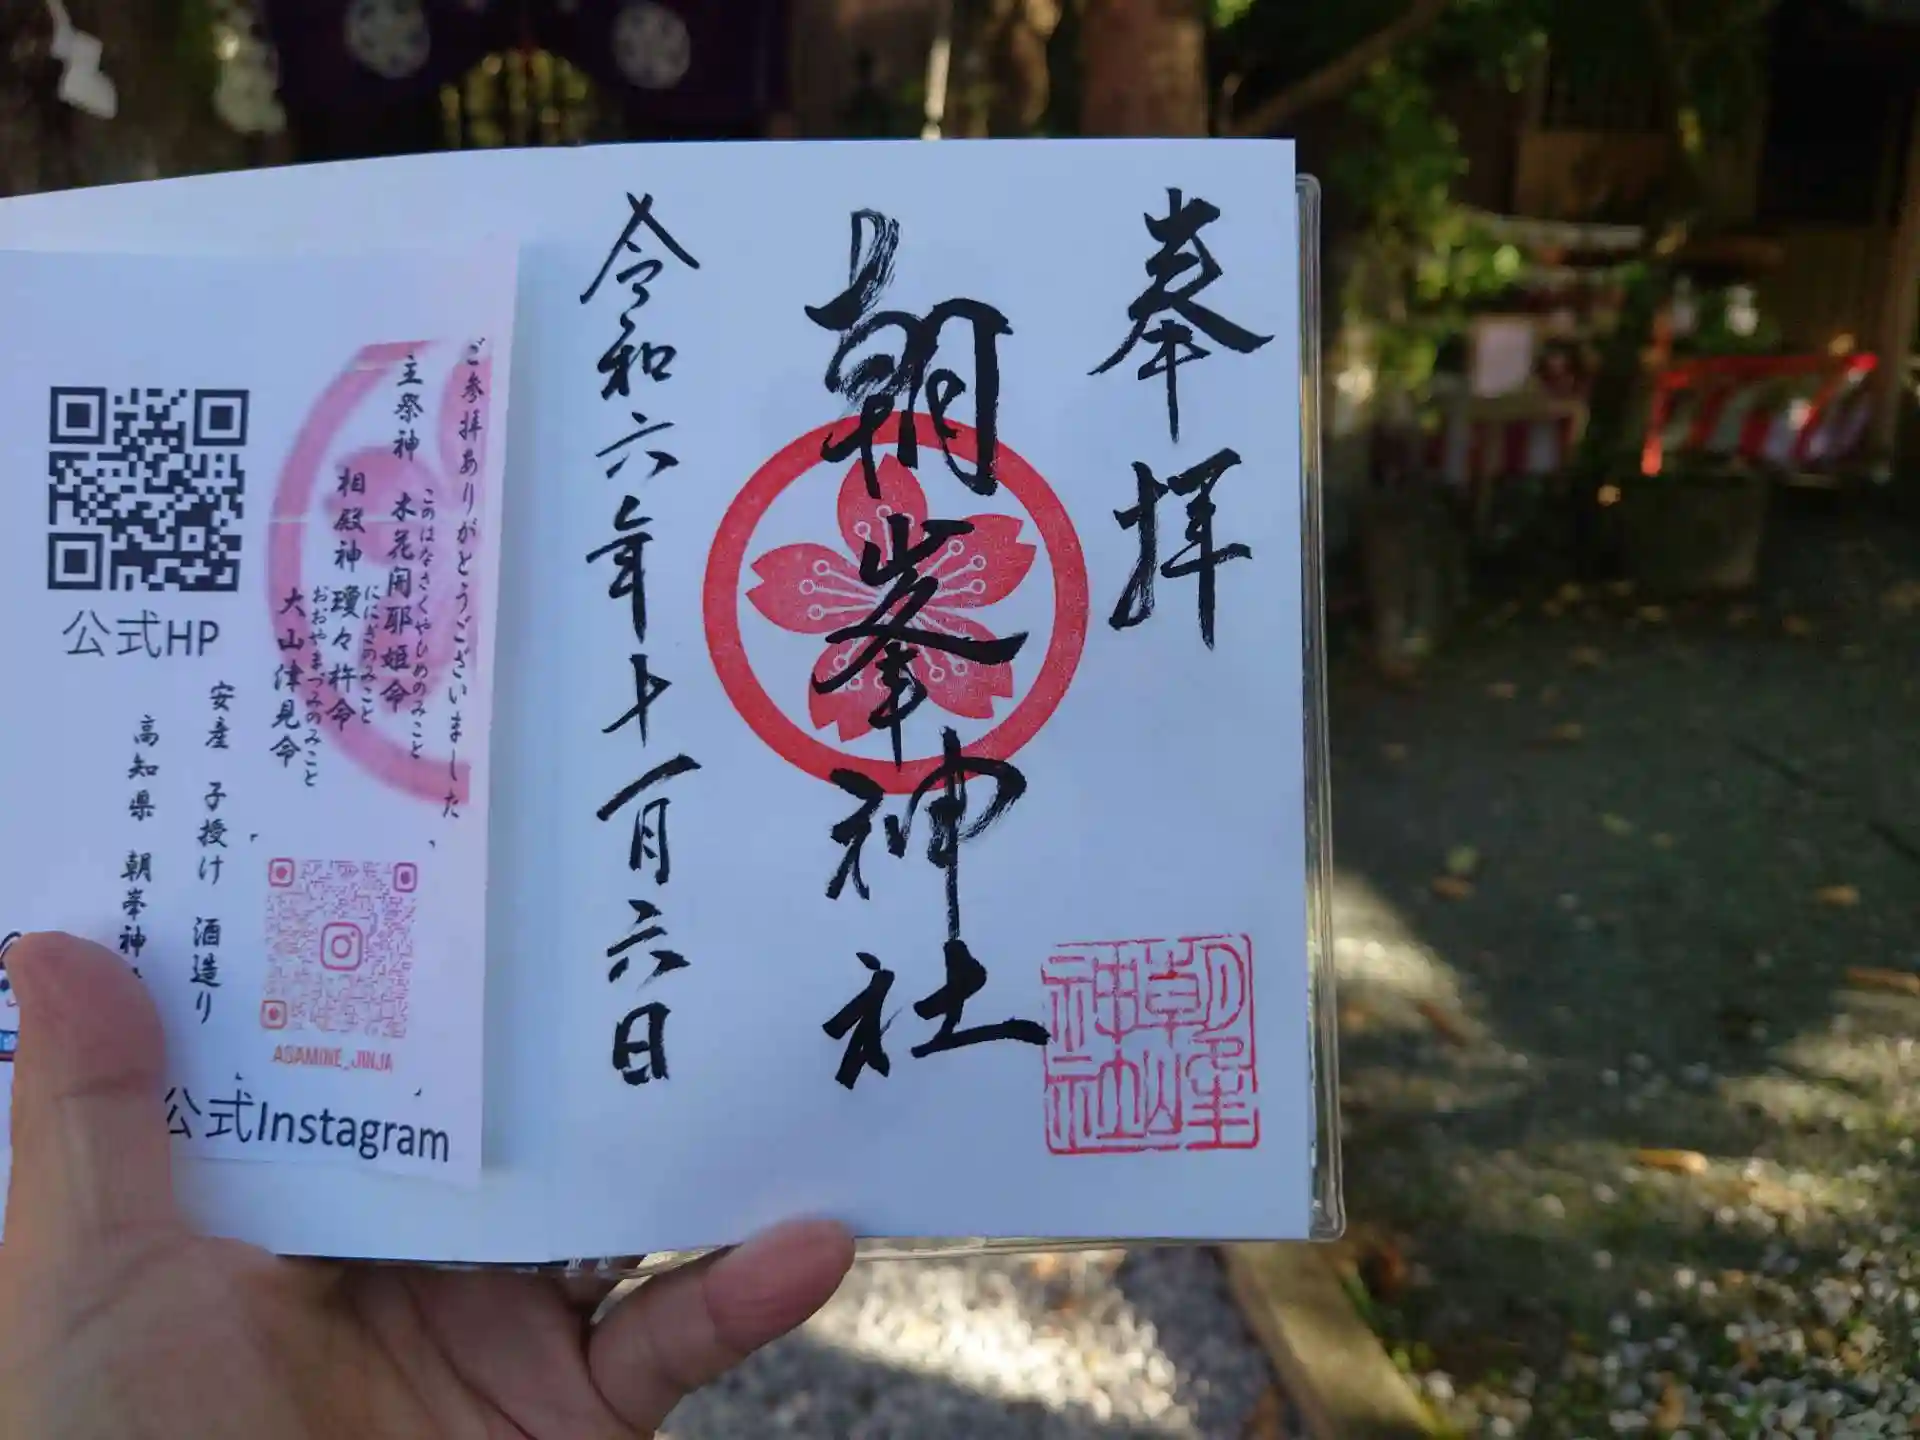 奉拝
朝峯神社
令和六年十一月六日
朝峯神社
ご参拝ありがとうございました
主祭神 木花開耶姫命
このはなさくやひめのみこと
相殿神 瓊々杵命
ににぎのみこと
大山津見命
おおやまづみのみこと
安産 子授け 酒造り
高知県 朝峯神
公式HP
ASAMINE_JINJA
公式Instagram